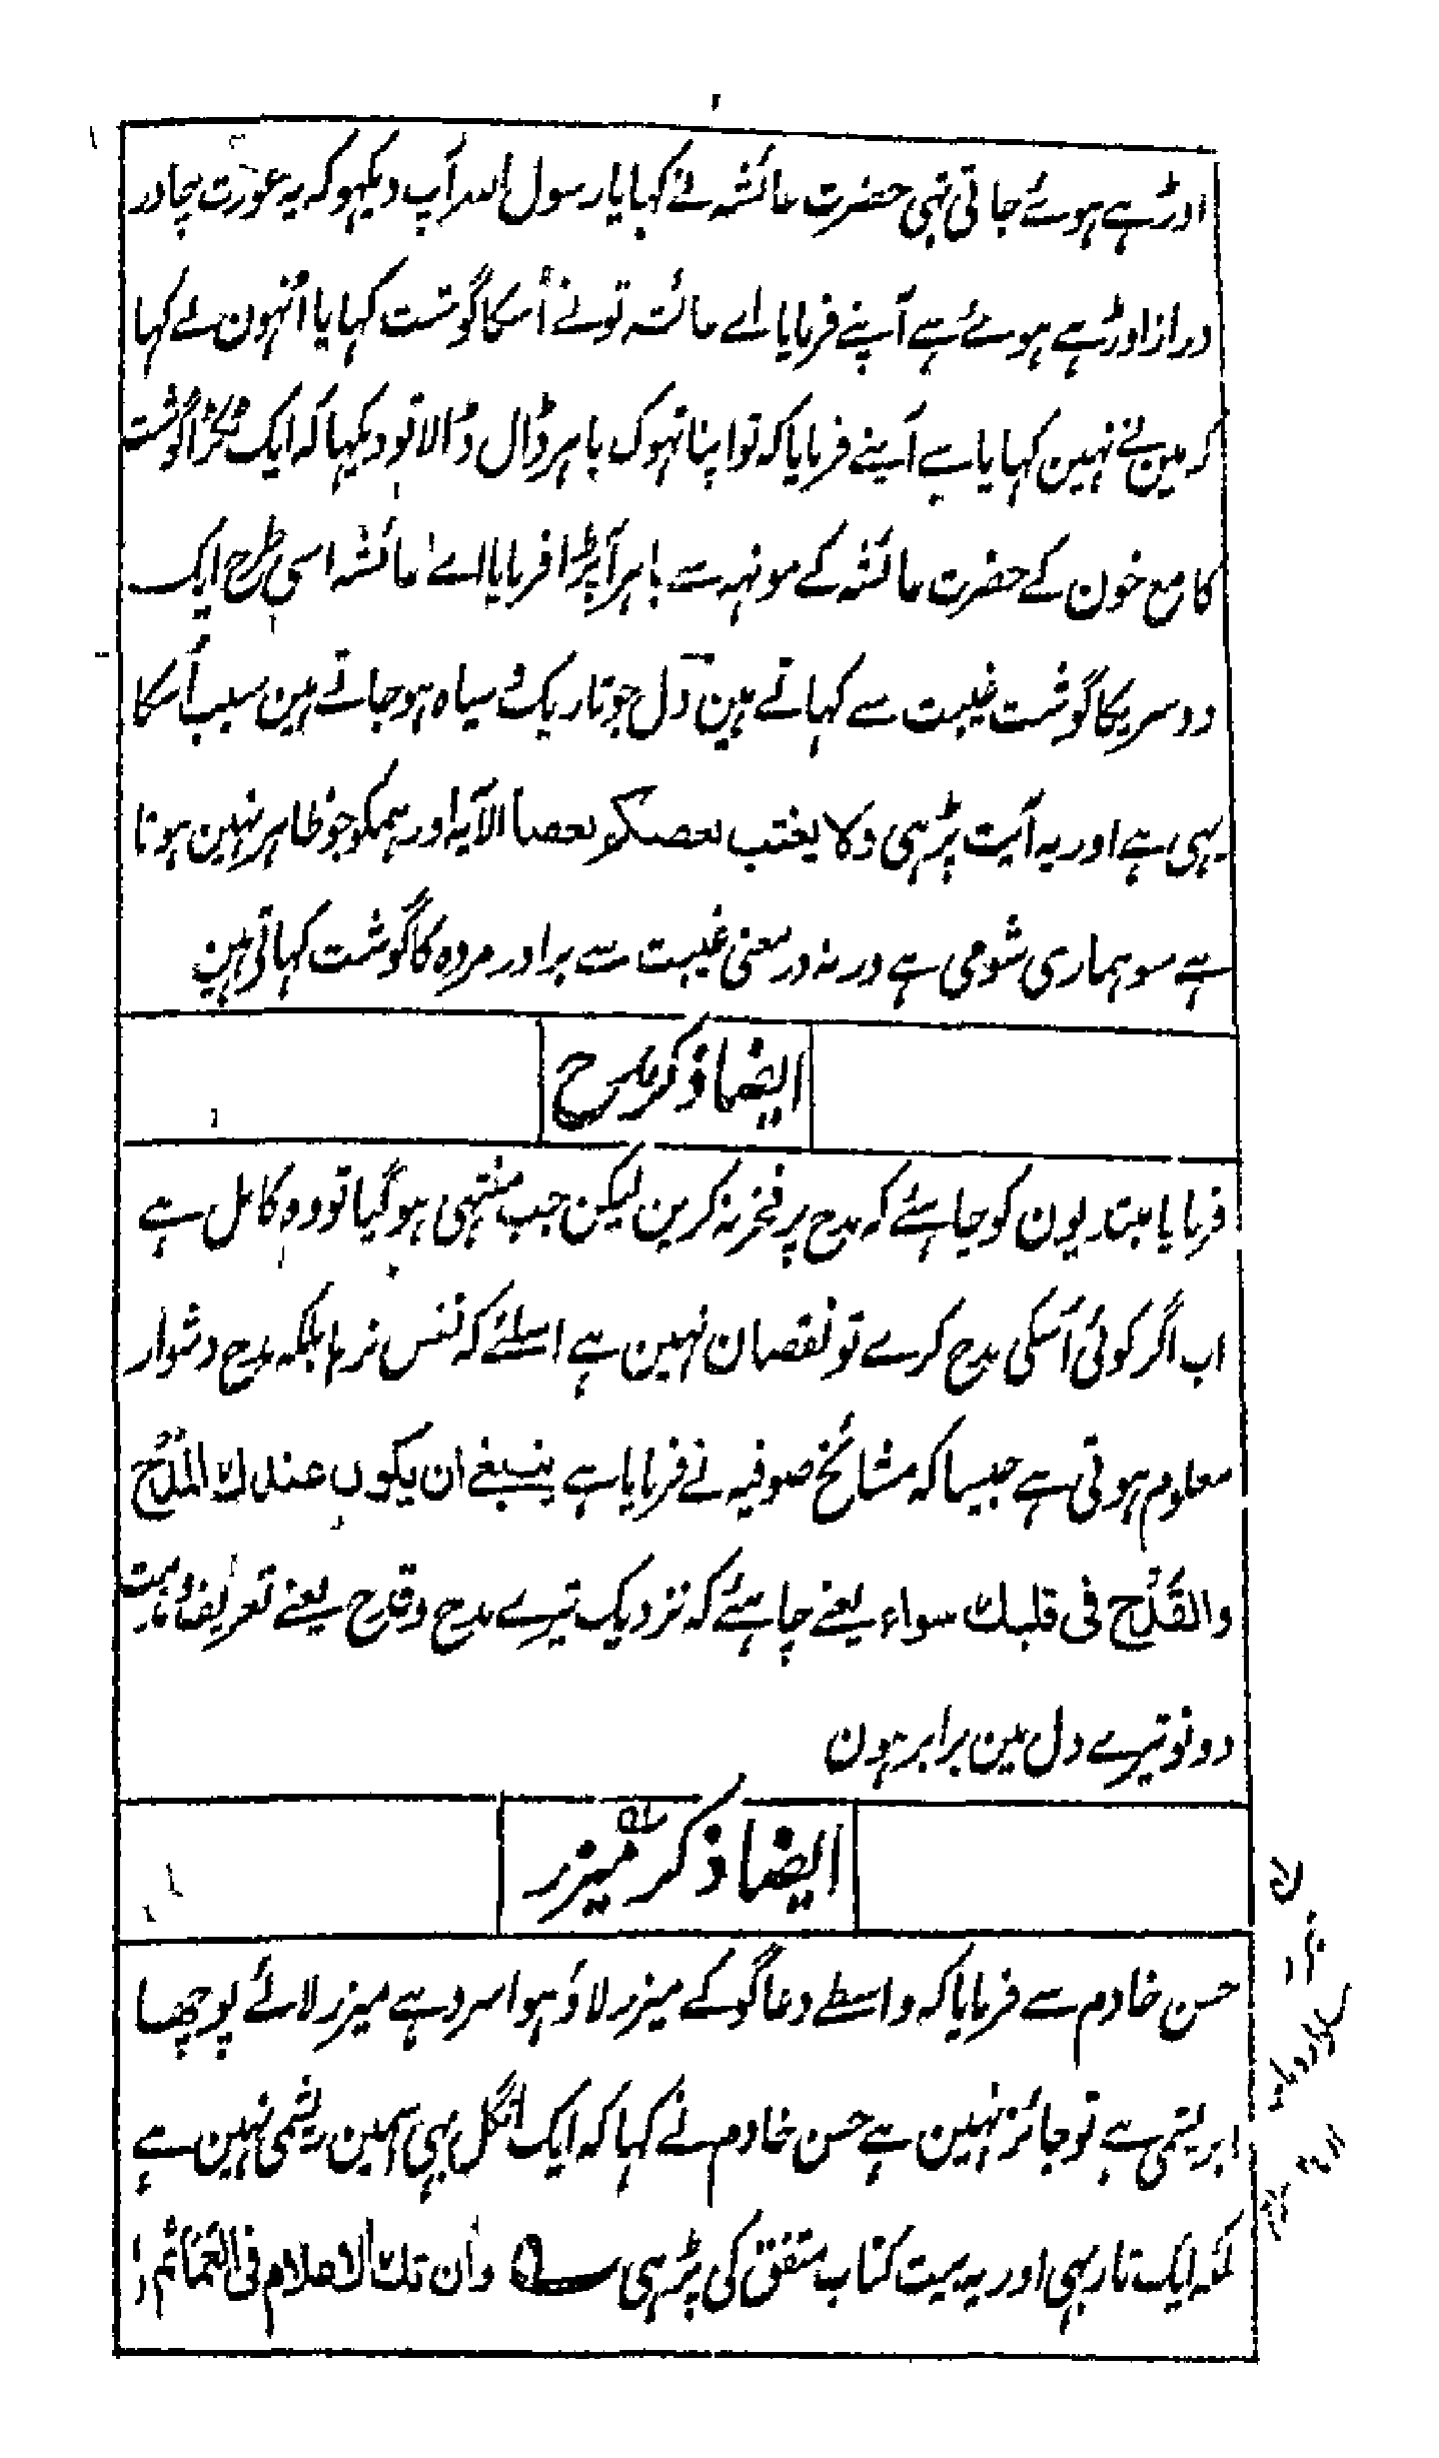 اوڑہے ہوئے جاتی تہی حضرت عائشہ نے کہا یا رسول اللہ آپ دیکہو کہ یہ عورت چادر
دراز اوڑہے ہوئے ہے آپنے فرمایا اے عائشہ تونے اُسکا گوشت کہایا اُنہون نے کہا
کہ مین نے نہین کہایا ہے آپنے فرمایا کہ تو اپنا تہوک باہر ڈال ڈالا تو دیکہا کہ ایک ٹکڑا گوشت
کا مع خون کے حضرت عائشہ کے مونہہ سے باہر آ پڑا فرمایا اے عائشہ اسی طرح ایک
دوسریکا گوشت غیبت سے کہاتے ہین دل جو تاریک و سیاہ ہو جاتے ہین سبب اُسکا
یہی ہے اور یہ آیت پڑہی ولا یغتب بعضکم بعضا الآیہ اور ہمکو جو ظاہر نہین ہوتا
ہے سو ہماری شومی ہے ورنہ در معنی غیبت سے برادر مردہ کا گوشت کہاتی ہین
ایضا ذکر مدح
فرمایا مبتدیون کو چاہئے کہ مدح پر فخر نہ کرین لیکن جب منتہی ہو گیا تو وہ کامل ہے
اب اگر کوئی اُسکی مدح کرے تو نقصان نہین ہے اسلئے کہ نفس نرہا بلکہ مدح دشوار
معلوم ہوتی ہے جیسا کہ مشائخ صوفیہ نے فرمایا ہے ینبغے ان یکون عندك المَدْح
والقَدْح فی قلبك سواء یعنے چاہئے کہ نزدیک تیرے مدح و قدح یعنے تعریف و مذمت
دونو تیرے دل مین برابر ہون
ایضا ذکر میزر
حسن خادم سے فرمایا کہ واسطے دعاگو کے میزر لاؤ ہوا سرد ہے میزر لائے پوچھا
ابریشمی ہے تو جائز نہین ہے حسن خادم نے کہا کہ ایک انگل بہی اسمین ریشمی نہین ہے
بلکہ ایک تار بہی اور یہ بیت کتاب متفق کی پڑہی وان تك الاعلام فی العمائم